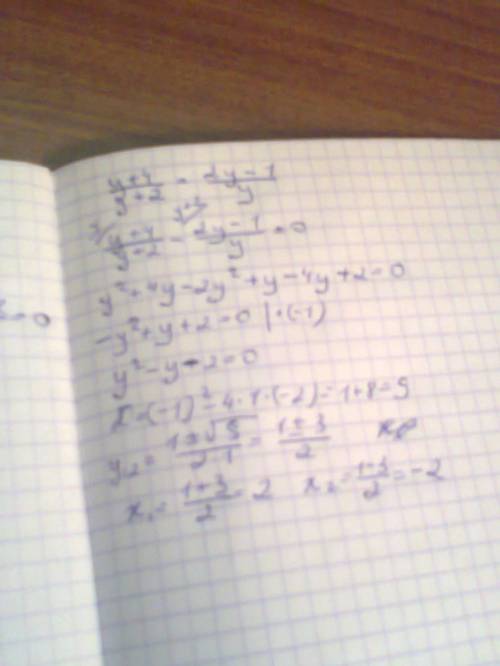 (y+4)/(y+2) = (2y-1)/y
y/ (y+4)/(y+2) - y+2/ (2y-1)/y = 0
y²+4y-2y²+y-4y+2=0
3=0
-y²+y+2=0 |·(-1)
y²-y-2=0
(-1)²-4·1·(-2)=1+8=9
y₂= (1±√9)/(2·1) = (1±3)/2
x₁= (1+3)/2 =2 x₂= (1-3)/2 =-2